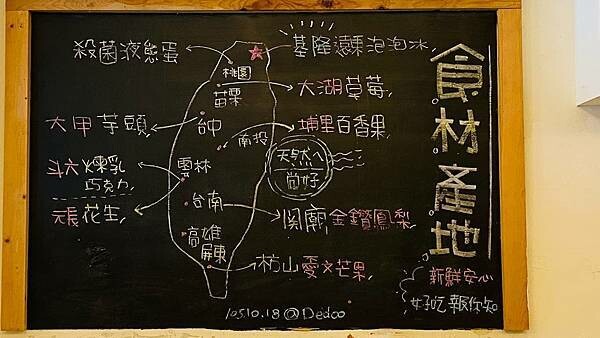 食材產地
殺菌液態蛋
基隆 泡泡冰
桃園
苗栗
大湖草莓
大甲芋頭
台中
南投
埔里百香果
天然ㄟ
尚好
斗六煉乳
巧克力
雲林
元長花生
台南
関廟金鑽鳳梨
高雄
屏東
枋山愛文芒果
新鮮安心
好吃報你知
105.10.18@Dedoo